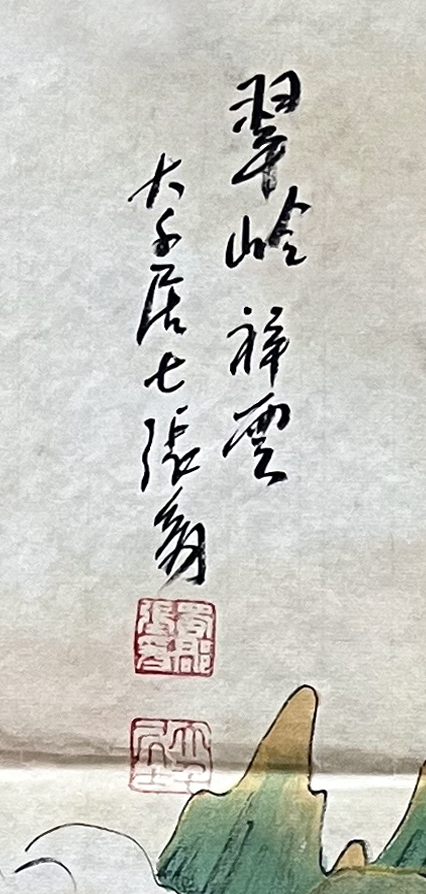 翠岭祥雲
大千居士張爰
張爰
大千居士